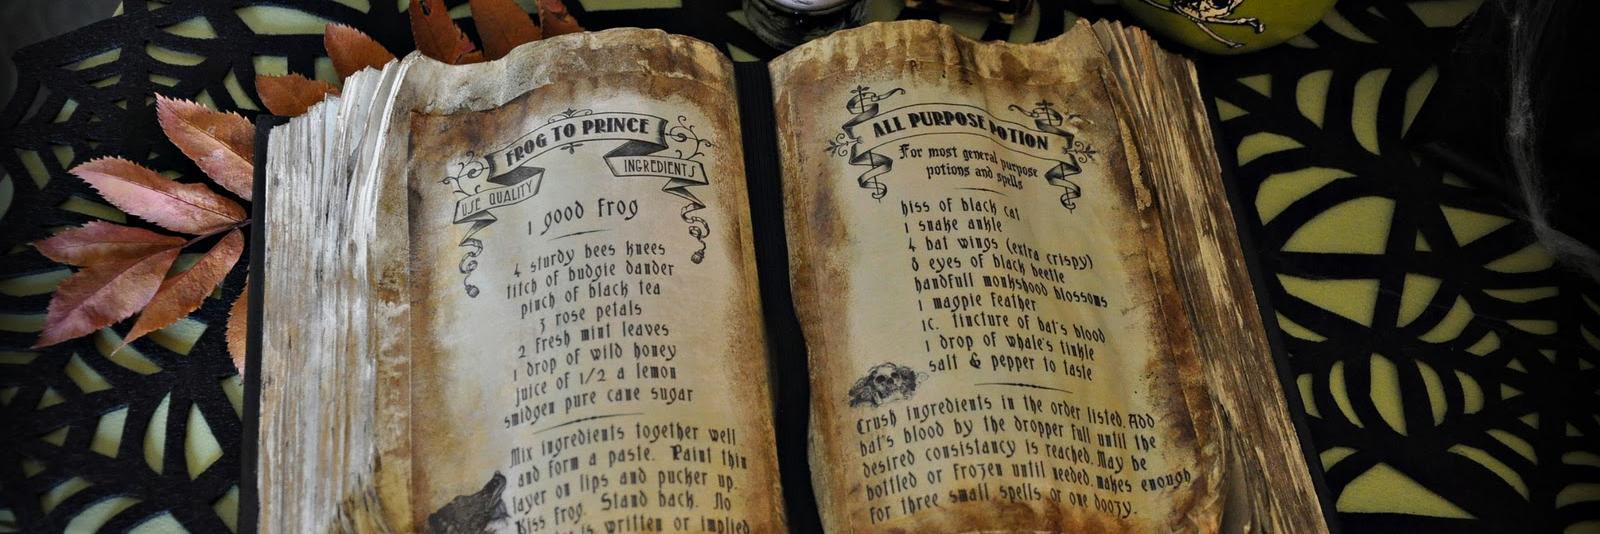 FROG TO PRINCE
USE QUALITY
INGREDIENTS
1 good frog
4 sturdy bees knees
titch of budgie dander
pinch of black tea
3 rose petals
2 fresh mint leaves
1 drop of wild honey
juice of 1/2 a lemon
smidgen pure cane sugar
Mix ingredients together well
and form a paste. Paint thin
layer on lips and pucker up.
Kiss frog. Stand back. No
is written or implied
ALL PURPOSE POTION
For most general purpose
potions and spells
kiss of black cat
1 snake ankle
4 bat wings (extra crispy)
8 eyes of black beetle
handfull monkshood blossoms
1 magpie feather
1c. tincture of bat's blood
1 drop of whale's tinkle
salt & pepper to taste
Crush ingredients in the order listed. Add
bat's blood by the dropper full until the
desired consistancy is reached. May be
bottled or frozen until needed. makes enough
for three small spells or one doozy.